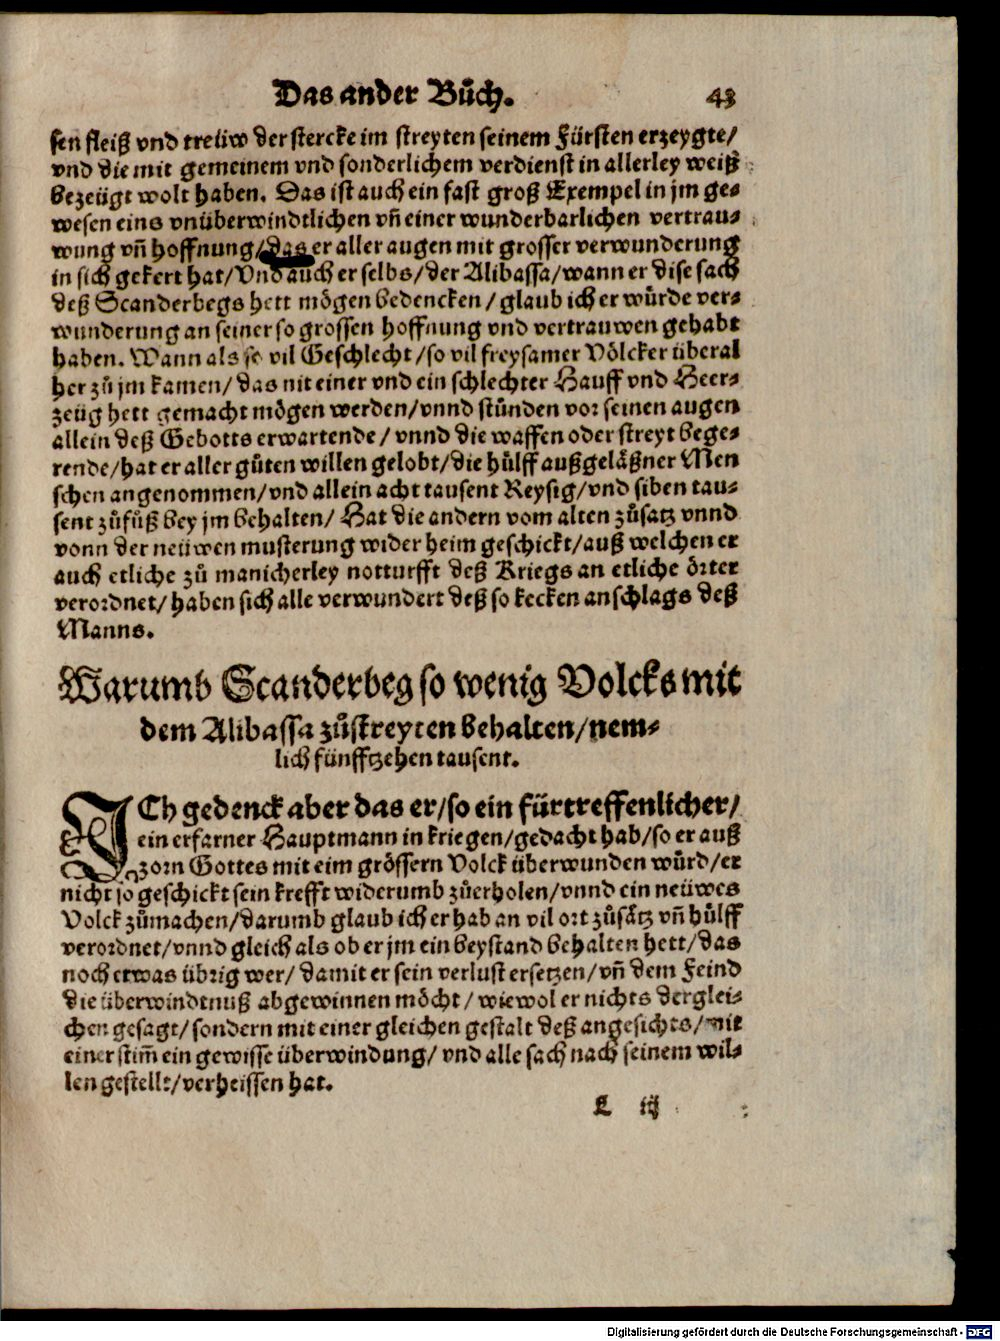 Das ander Bůch. 43
sen fleiß vnd treüw der stercke im streyten seinem Fürsten erzeygte/
vnd die mit gemeinem vnd sonderlichem verdienst in allerley weiß
bezeügt wolt haben. Das ist auch ein fast groß Exempel in jm ge-
wesen eins vnüberwindtlichen vñ einer wunderbarlichen vertrau-
wung vñ hoffnung/das er aller augen mit grosser verwunderung
in sich gekert hat/Vnd auch er selbs/der Alibassa/wann er dise sach
deß Scanderbegs hett mögen bedencken/glaub ich er würde ver-
wunderung an seiner so grossen hoffnung vnd vertrauwen gehabt
haben. Wann als so vil Geschlecht/so vil freysamer Völcker überal
her zů jm kamen/das nit einer vnd ein schlechter Hauff vnd Heer-
zeüg hett gemacht mögen werden/vnnd stůnden vor seinen augen
allein deß Gebotts erwartende/vnnd die waffen oder streyt bege-
rende/hat er aller gůten willen gelobt/die hülff außgeläßner Men
schen angenommen/vnd allein acht tausent Reysig/vnd siben tau-
sent zůfůß bey jm behalten/Hat die andern vom alten zůsatz vnnd
vonn der neüwen musterung wider heim geschickt/auß welchen er
auch etliche zů manicherley notturfft deß Kriegs an etliche örter
verordnet/haben sich alle verwundert deß so kecken anschlags deß
Manns.
Warumb Scanderbeg so wenig Volcks mit
dem Alibassa zůstreyten behalten/nem-
lich fünfftzehen tausent.
JCh gedenck aber das er/so ein fürtreffenlicher/
ein erfarner Hauptmann in kriegen/gedacht hab/so er auß
zorn Gottes mit eim grössern Volck überwunden würd/er
nicht so geschickt sein krefft widerumb zůerholen/vnnd ein neüwes
Volck zůmachen/darumb glaub ich er hab an vil ort zůsätz vñ hülff
verordnet/vnnd gleich als ob er jm ein beystand behalten hett/das
noch etwas übrig wer/damit er sein verlust ersetzen/vñ dem Feind
die überwindtnuß abgewinnen möcht/wiewol er nichts derglei-
chen gesagt/sondern mit einer gleichen gestalt deß angesichts/mit
einer stim̃ ein gewisse überwindung/vnd alle sach nach seinem wil-
len gestellt/verheissen hat.
L iij
Digitalisierung gefördert durch die Deutsche Forschungsgemeinschaft - DFG